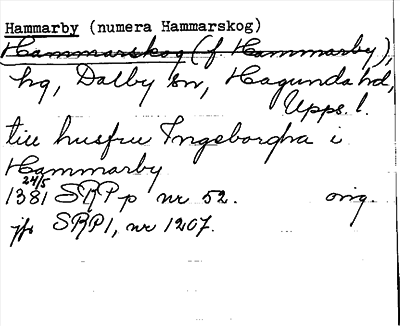 Hammarby (numera Hammarskog)
Hammarskog (f. Hammarby),
hg, Dalby sn, Hagunda hd,
Upps. l.
till husfru Ingeborgha i
Hammarby
24/5
1381 SRPp nr 52. orig.
jfr SRP1, nr 1207.